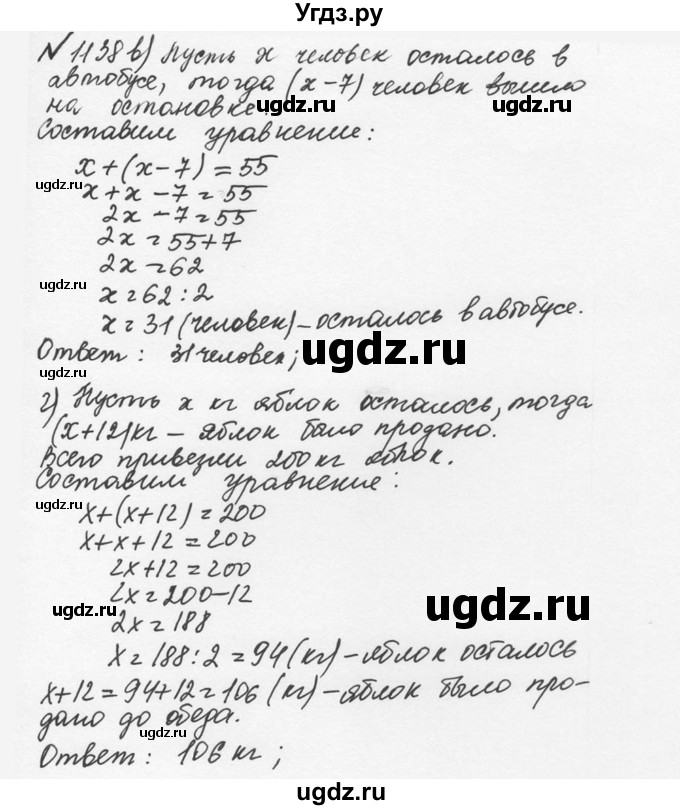 Угдз.ру
№ 1138 в) Пусть x человек осталось в
автобусе, тогда (x-7) человек вышло
на остановке.
ugdz.ru ugdz.ru
Составим уравнение:
x+(x-7)=55
ugdz.ru
x+x-7=55
2x-7=55
2x=55+7
2x=62
ugdz.ru
x=62:2
x=31 (человек) - осталось в автобусе.
Ответ: 31 человек;
ugdz.ru
г) Пусть x кг яблок осталось, тогда
(x+12) кг - яблок было продано.
Всего привезли 200 кг яблок.
ugdz.ru ugdz.ru
Составим уравнение:
x+(x+12)=200
x+x+12=200
2x+12=200
2x=200-12
ugdz.ru
ugdz.ru
2x=188
x=188:2=94 (кг) - яблок осталось
x+12=94+12=106 (кг) - яблок было про-
дано до обеда.
ugdz.ru ugdz.ru
Ответ: 106 кг;
ugdz.ru